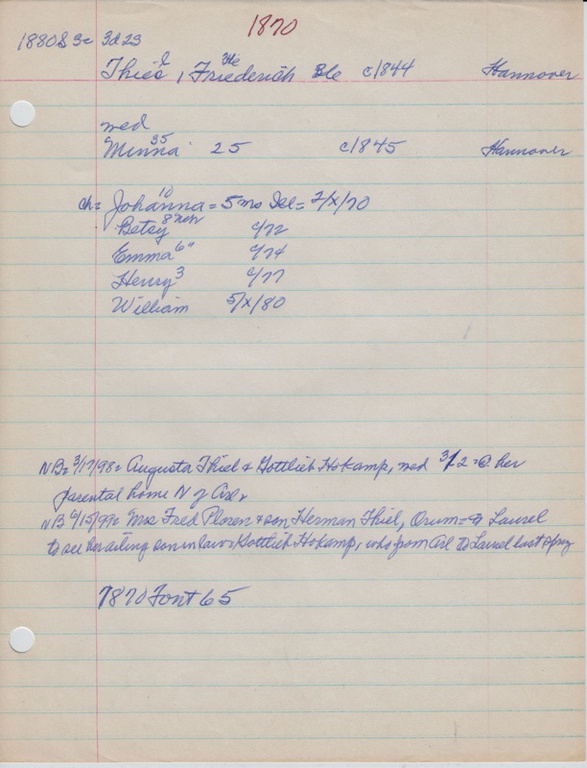 1870
1880 S 3c 3d 23
l 36
Thies, Friederich c1844 Hannover
med
35
Minna 25 c1845 Hannover
10
ch= Johanna = 5 mo = 2/X/70
Betsy 8 c/72
Emma 6" c/74
Henry 3 c/77
William 5/X/80
NB= 3/17/98= Augusta Thiel & Gottlieb Hokamp, med 3/2 = @ her
parental home N of
NB 6/15/99= Mrs Fred Ploren & son Herman Thiel, Orum = Laurel
to see her ailing son in law = Gottlieb Hokamp, who from to Laurel last
1870 Font 65